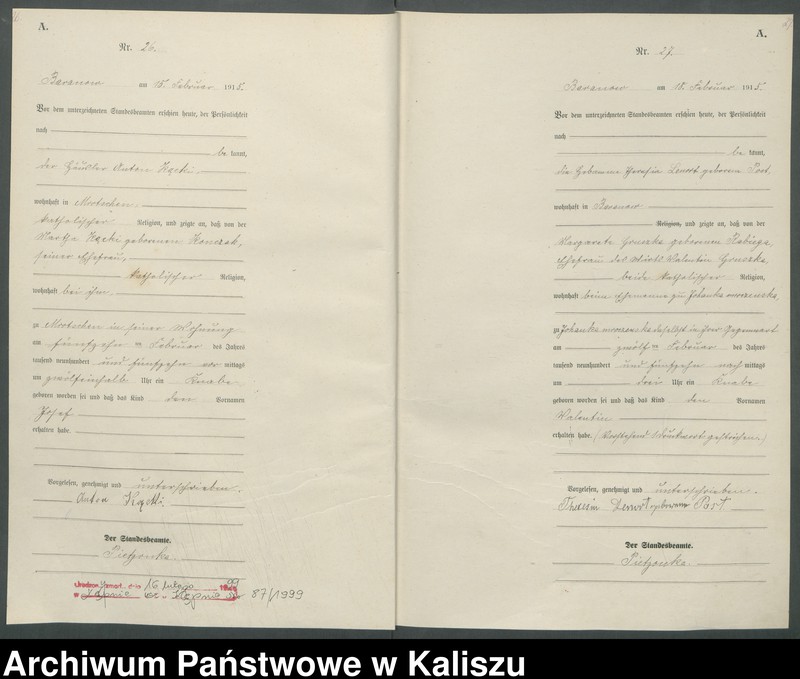 A.
Nr. 26.
Baranow am 15. Februar 1915.
Vor dem unterzeichneten Standesbeamten erschien heute, der Persönlichkeit
nach
be kannt,
der Häusler Anton Kącki
wohnhaft in Mortschen,
katholischer Religion, und zeigte an, daß von der
Kącki geborenen
seiner Ehefrau,
katholischer Religion,
wohnhaft bei ihm,
zu Mortschen in seiner Wohnung
am fünfzehnten Februar des Jahres
tausend neunhundert und fünfzehn vor mittags
um zwölfeinhalb Uhr ein Knabe
geboren worden sei und daß das Kind den Vornamen
Josef
erhalten habe.
Vorgelesen, genehmigt und unterschrieben.
Anton Kącki.
Der Standesbeamte.
Pietzonka.
16 lutego 1999
Kępnie 87/1999
A.
Nr. 27.
Baranow am 18. Februar 1915.
Vor dem unterzeichneten Standesbeamten erschien heute, der Persönlichkeit
nach
be kannt,
die Hebamme Theresia Lenort geborene Post,
wohnhaft in Baranow
Religion, und zeigte an, daß von der
Margarete Gruszka geborenen
Ehefrau des Wirts Valentin Gruszka,
beide katholischer Religion,
wohnhaft beim Ehemanne zu
zu daselbst in ihrer Gegenwart
am zwölften Februar des Jahres
tausend neunhundert und fünfzehn nach mittags
um drei Uhr ein Knabe
geboren worden sei und daß das Kind den Vornamen
Valentin
erhalten habe. (Vorstehend 1 Druckwort gestrichen.)
Vorgelesen, genehmigt und unterschrieben.
Theresia Lenort geborene Post
Der Standesbeamte.
Pietzonka.
Archiwum Państwowe w Kaliszu